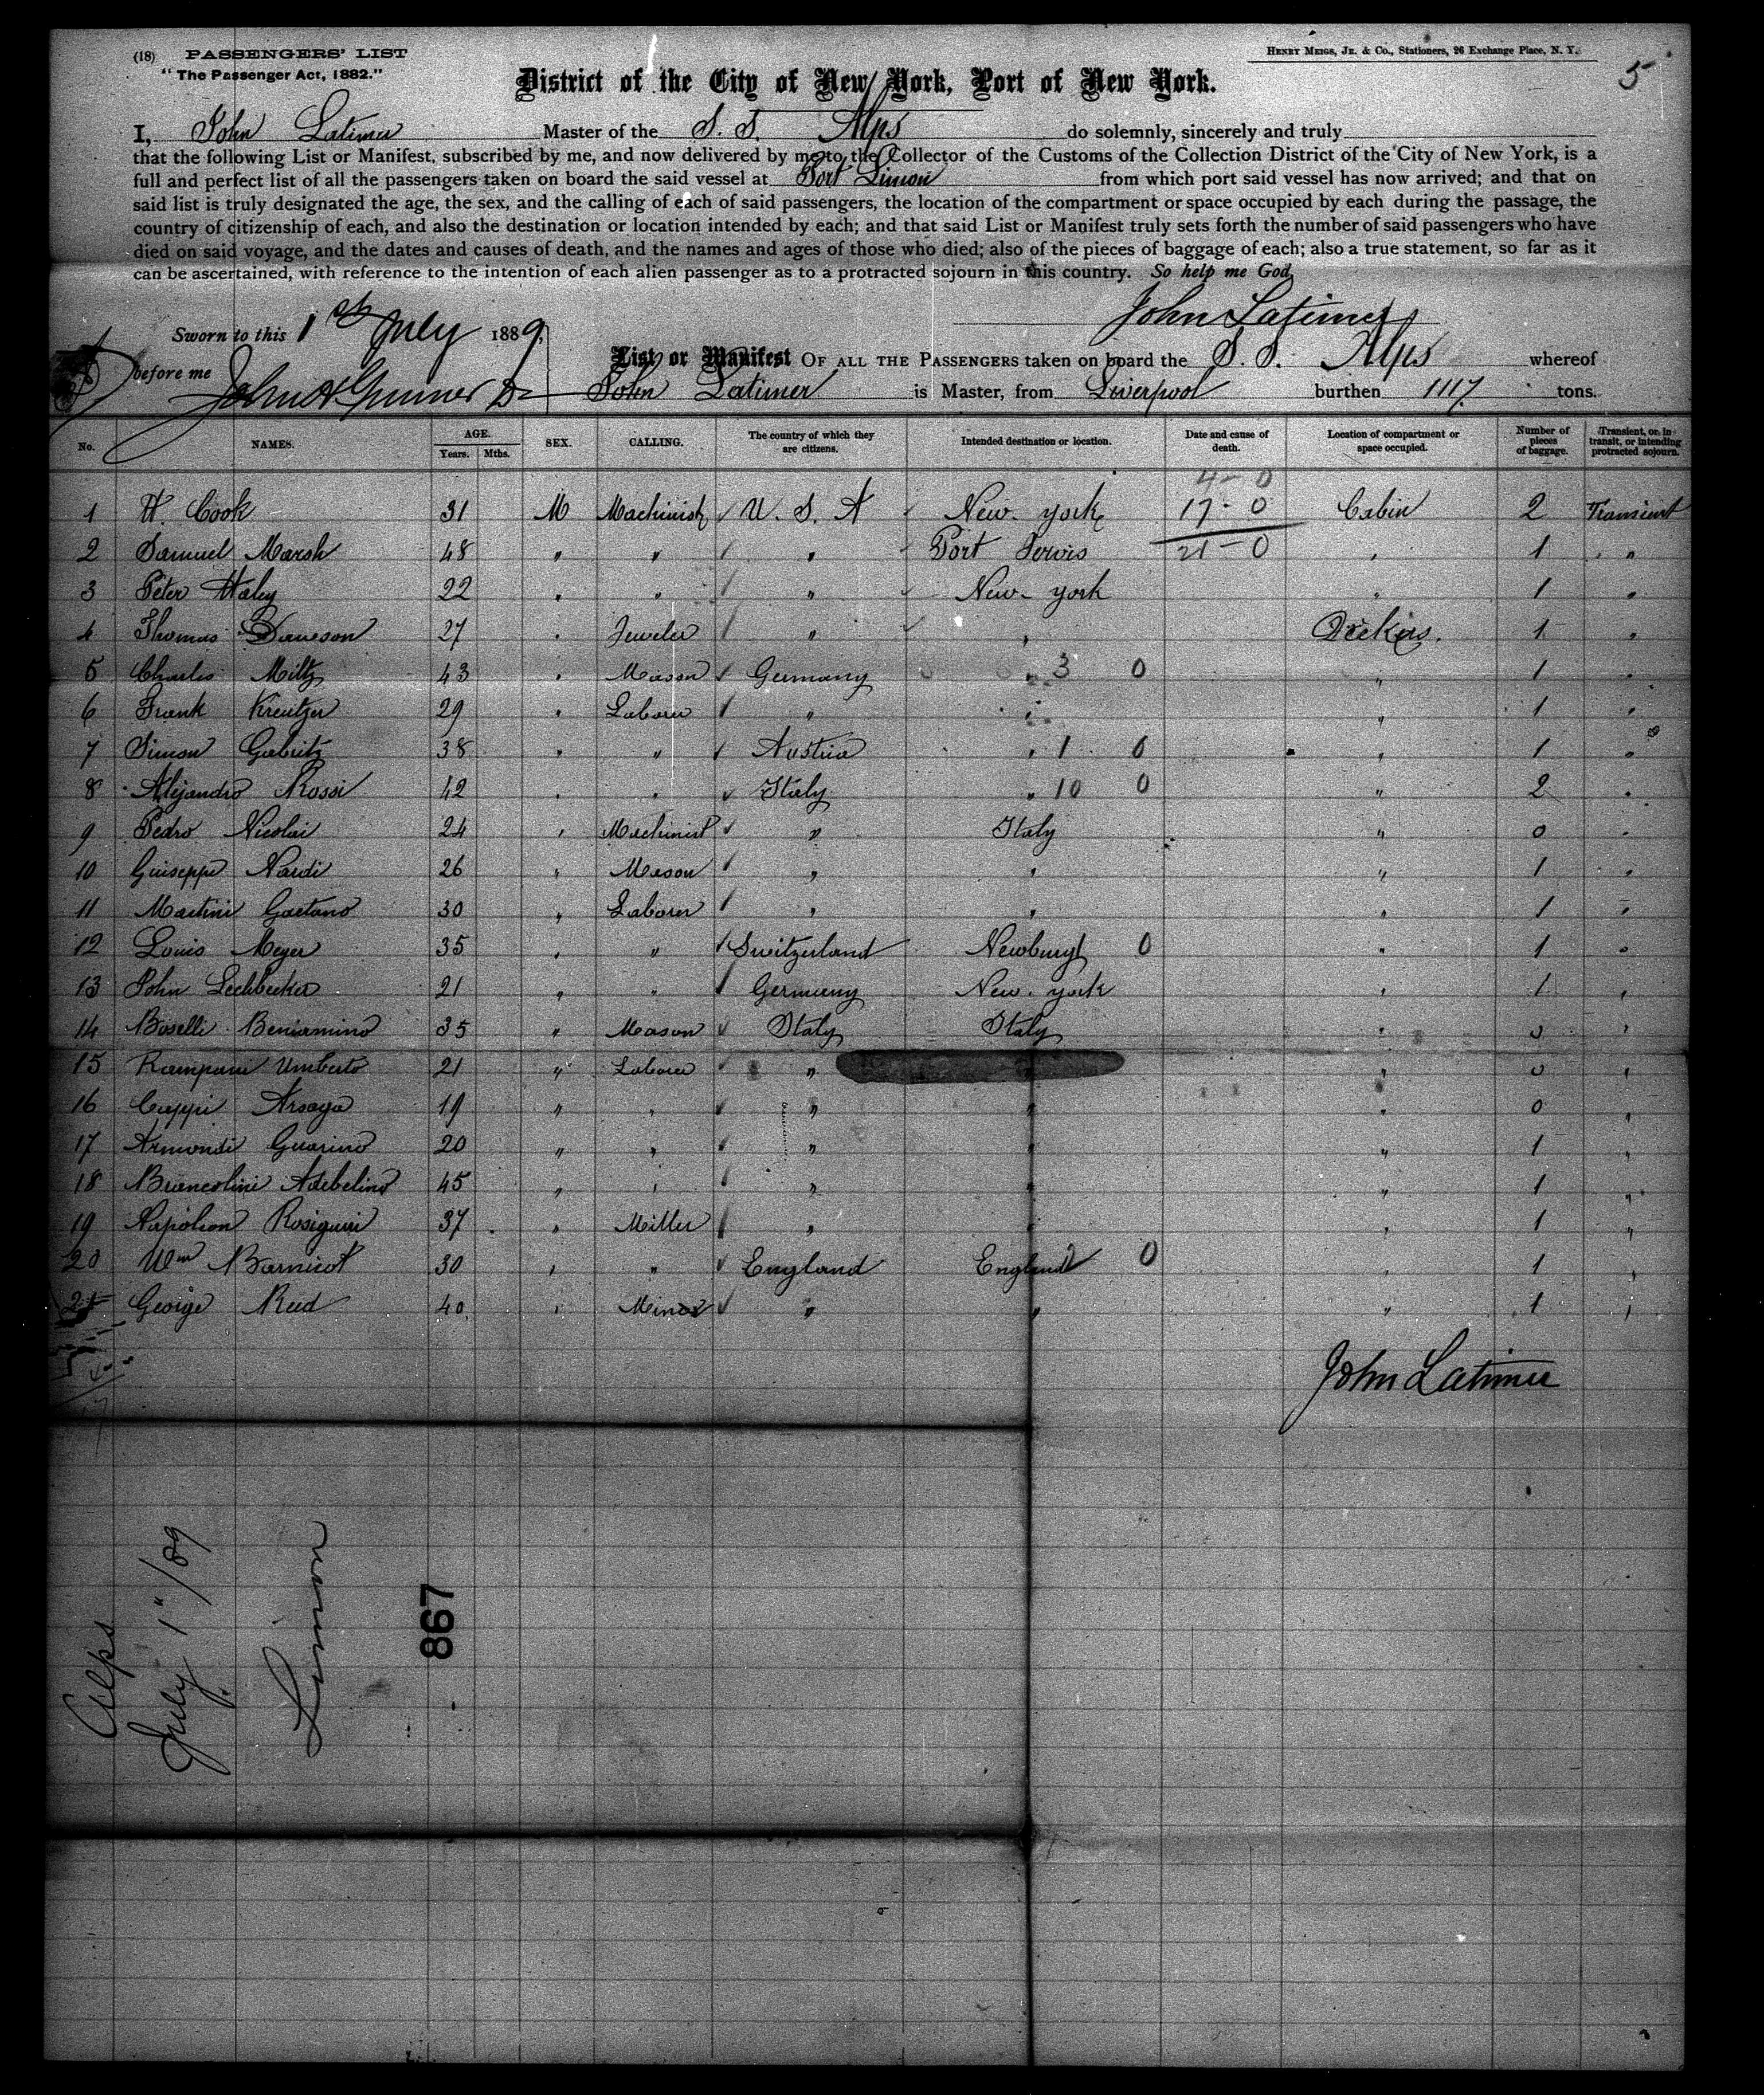 (18) PASSENGERS' LIST
"The Passenger Act, 1882."
HENRY MEIGS, JR. & CO., Stationers, 26 Exchange Place, N. Y.
5
District of the City of New York, Port of New York.
I, John Latimer Master of the S. S. Alps do solemnly, sincerely and truly
that the following List or Manifest, subscribed by me, and now delivered by me to the Collector of the Customs of the Collection District of the City of New York, is a
full and perfect list of all the passengers taken on board the said vessel at Port Limon from which port said vessel has now arrived; and that on
said list is truly designated the age, the sex, and the calling of each of said passengers, the location of the compartment or space occupied by each during the passage, the
country of citizenship of each, and also the destination or location intended by each; and that said List or Manifest truly sets forth the number of said passengers who have
died on said voyage, and the dates and causes of death, and the names and ages of those who died; also of the pieces of baggage of each; also a true statement, so far as it
can be ascertained, with reference to the intention of each alien passenger as to a protracted sojourn in this country. So help me God.
John Latimer
Sworn to this 1st July 1889,
before me
List or Manifest OF ALL THE PASSENGERS taken on board the S. S. Alps whereof
John Latimer is Master, from Liverpool burthen 1117 tons.
No. NAMES. AGE. Years. Mths. SEX. CALLING. The country of which they are citizens. Intended destination or location. Date and cause of death. Location of compartment or space occupied. Number of pieces of baggage. Transient, or in transit, or intending protracted sojourn.
4-0
1 H. Cook 31 M Machinist U. S. A New-york 17-0 Cabin 2 Transient
2 Samuel Marsh 48 " " " Port Jervis 21-0 " 1 "
3 Peter Haley 22 " " " New-york " 1 "
4 Thomas 27 " Jeweler " " Deckers. 1 "
5 Charles Miltz 43 " Mason Germany " 3 0 " 1 "
6 Frank Kreutzer 29 " Laborer " " " 1 "
7 Simon Gabritz 38 " " Austria " 1 0 " 1 "
8 Alejandro Rossi 42 " " Italy " 10 0 " 2 "
9 Pedro Nicolai 24 " Machinist " Italy " 0 "
10 Guiseppe Nardi 26 " Mason " " " 1 "
11 Martini Gaetano 30 " Laborer " " " 1 "
12 Louis Meyer 35 " " Switzerland Newburgh 0 " 1 "
13 John Lechbecker 21 " " Germany New-york " 1 "
14 Boselli Beniamino 35 " Mason Italy Italy " 0 "
15 Rampani Umberto 21 " Laborer " " " 0 "
16 Cuppi Arsaya 19 " " " " " 0 "
17 Armondi Guarino 20 " " " " " 1 "
18 Brancolini Adebelino 45 " " " " " 1 "
19 Napoleon Rosiguini 37 " Miller " " " 1 "
20 Wm Barnicot 30 " " England England 0 " 1 "
21 George Reed 40 " Miner " " " 1 "
John Latimer
Alps
July 1"/89
Limon
867